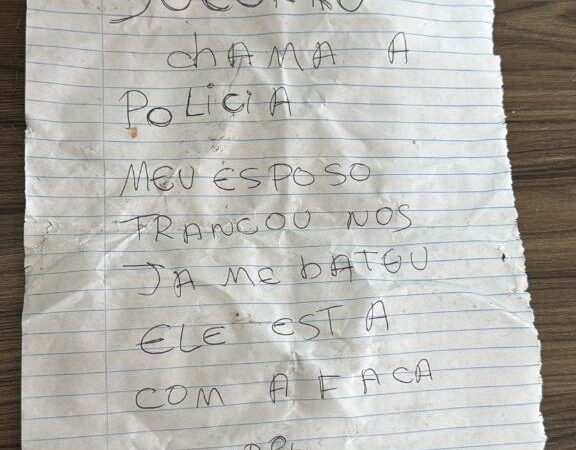 SOCORRO
chAMA A
PoLiciA
MEU ESPOSO
TRANCOU NOS
JA ME bATEU
ELE ESTA
COM A FACA